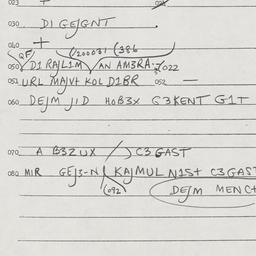 023 +
030 DI GEJGNT .
040 +
(200031 (386
050 D1 RAJL1M AN AM3RA: /022
051 URL MAJVT KOL D1BR 052 —
060 DEJM JID HOB3X G3KENT G1T
070 A B3ZUX / C3 GAST
080 MIR GEJ3-N KAJMUL N1ST C3GAST
(092)
DEJM MENCT